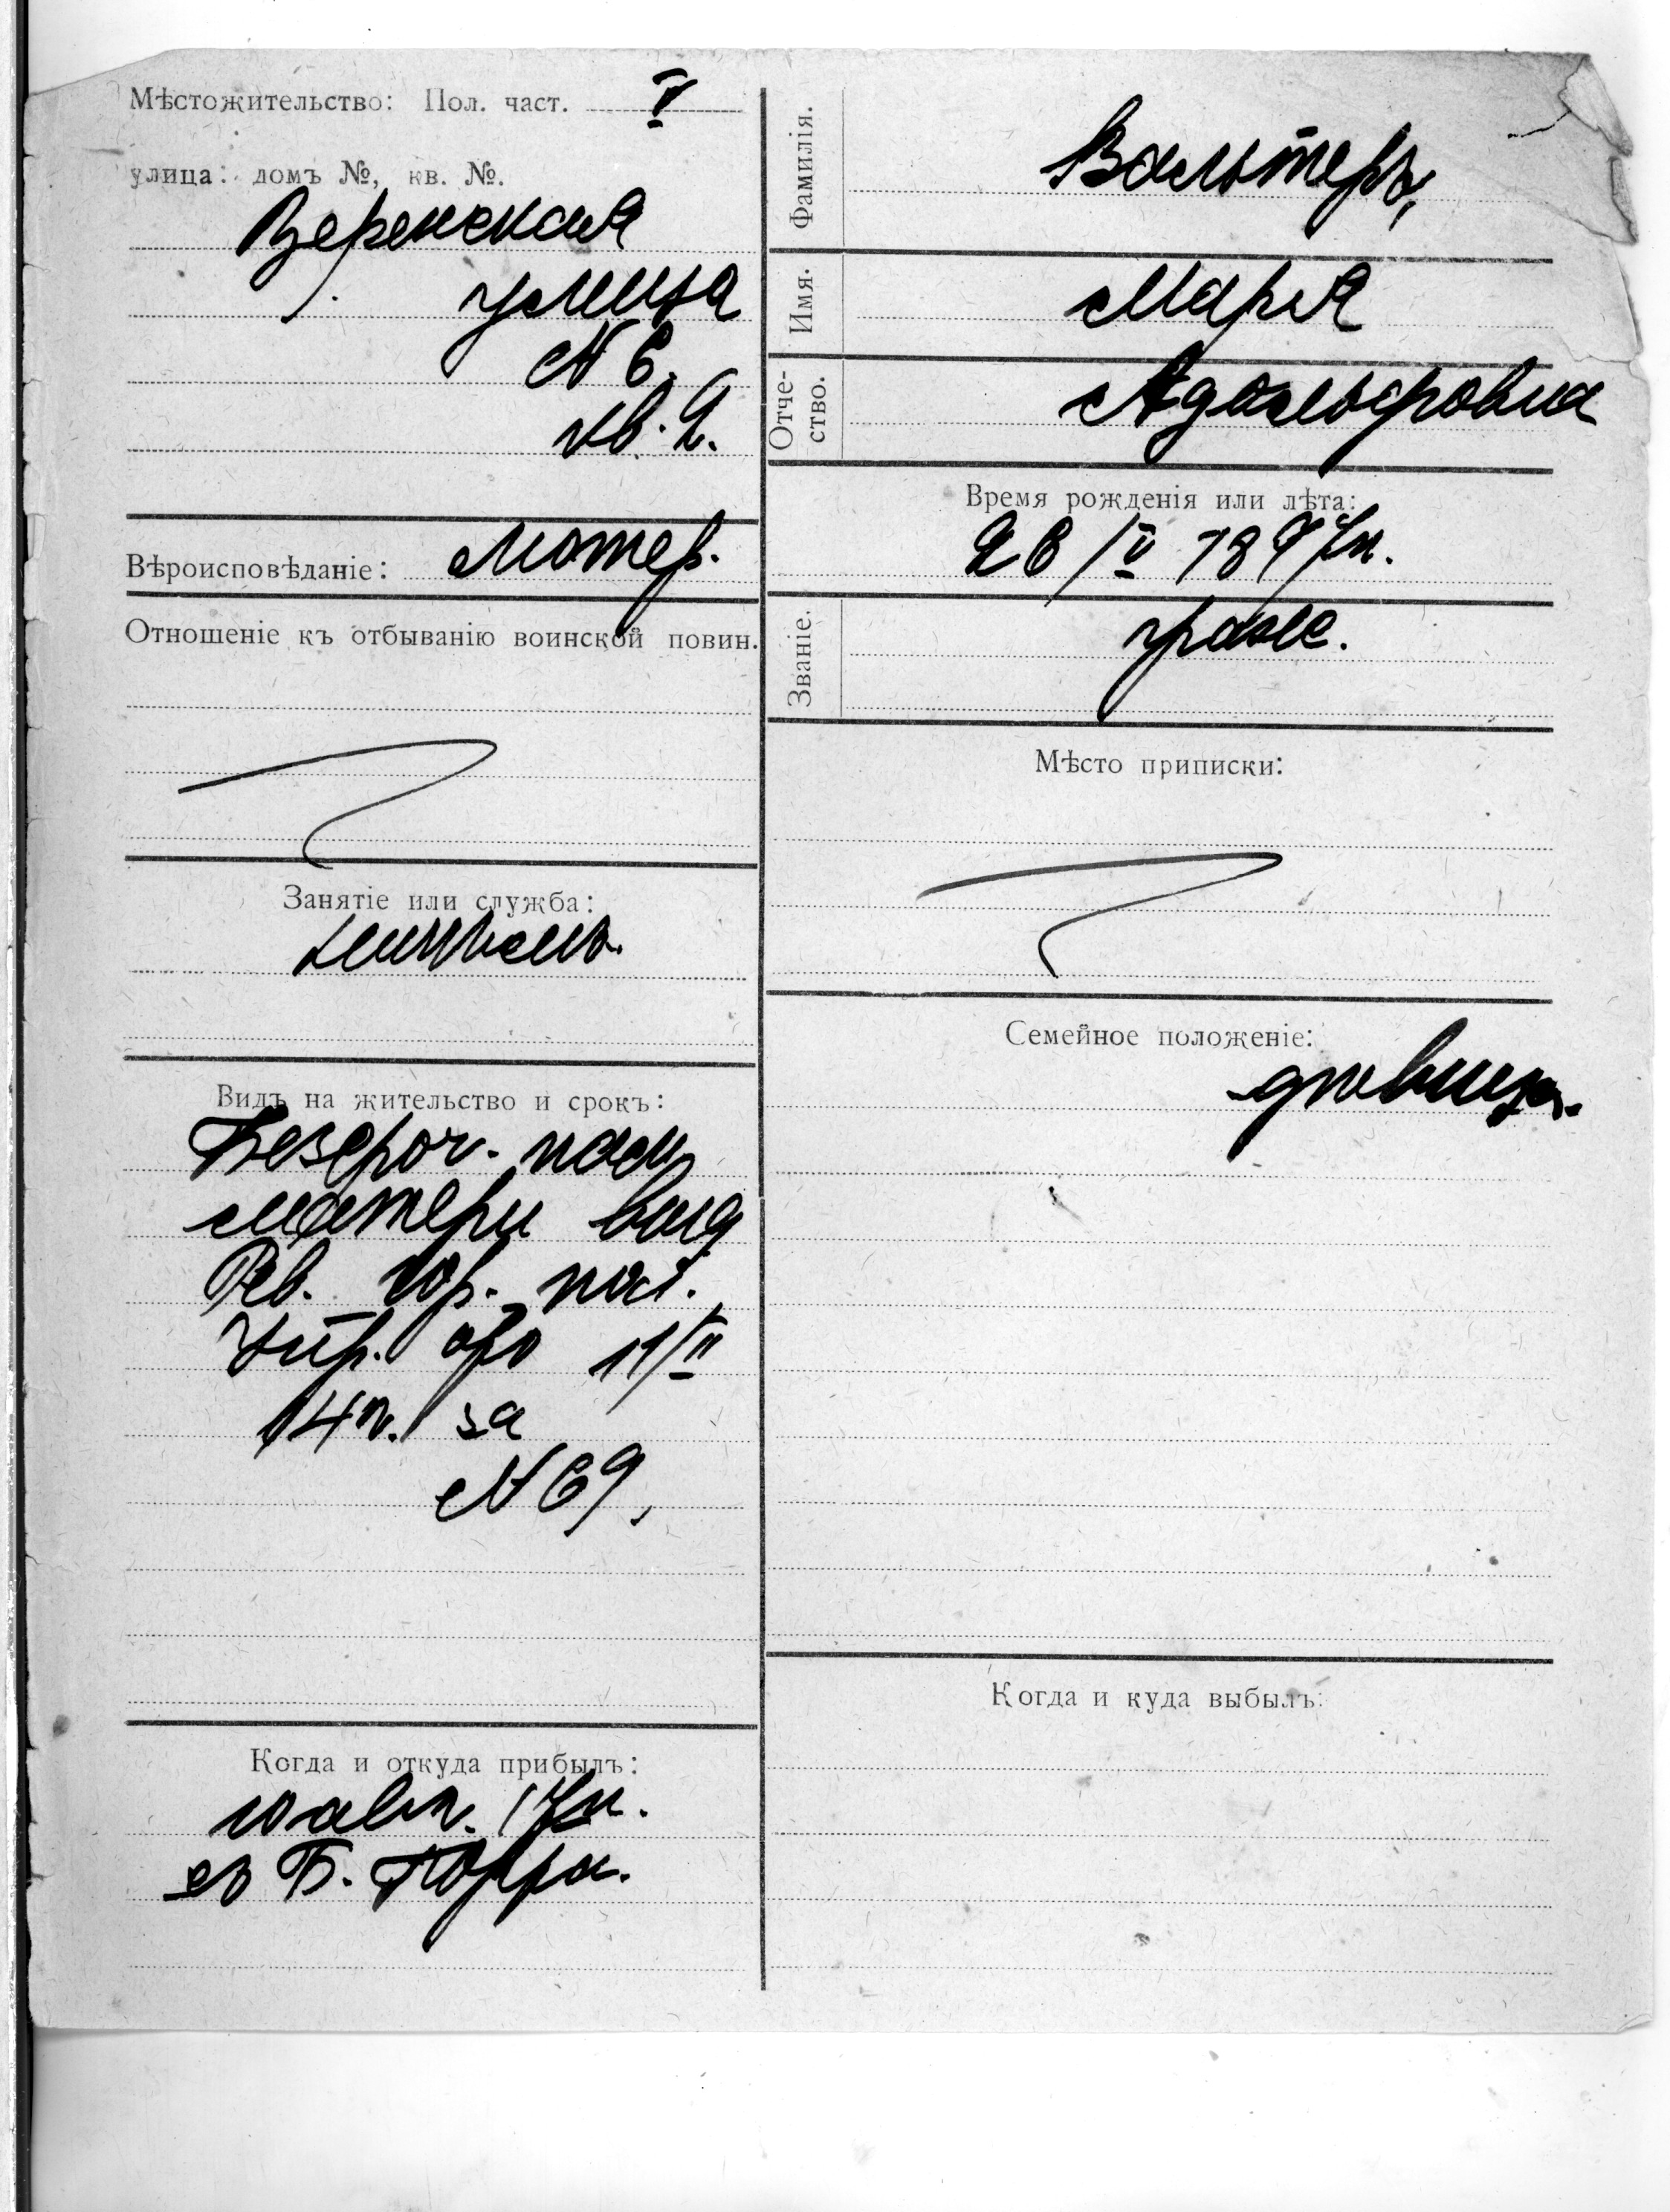 Мѣстожительство: Пол. част. V
улица: домъ №, кв. №.
Веренская
улица
№ 6.
кв. 2.
Вѣроисповѣданіе: Лютер.
Отношеніе къ отбыванію воинской повин.
Занятіе или служба:
Видъ на жительство и срокъ:
Безсроч. пасп.
матери выд
Рев. гор. пол.
Упр. отъ 11/II
14г. за
№ 69,
Когда и откуда прибылъ:
10 авг. 17г.
съ Б. Юрра.
Фамилія. Вальтеръ,
Имя. Марія
Отче-
ство. Адольфовна
Время рожденія или лѣта:
26/V 1897г.
Званіе. граж.
Мѣсто приписки:
Семейное положеніе:
дѣвица.
Когда и куда выбылъ: